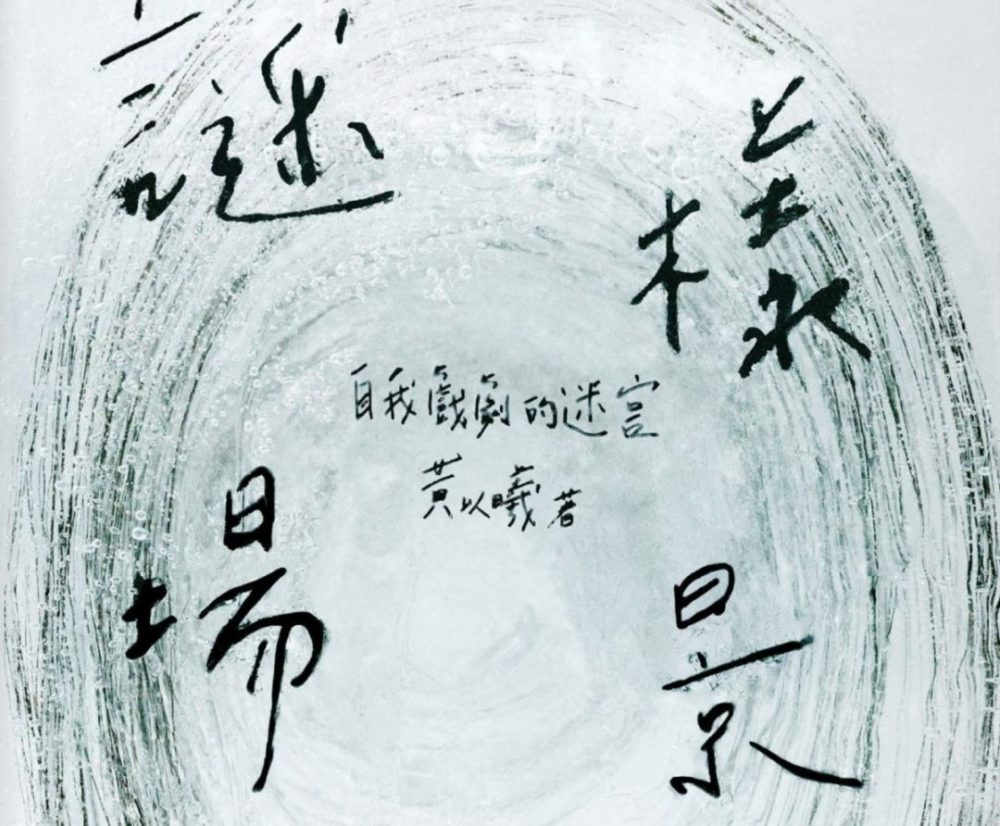 謎樣
場景
自我戲劇的迷宮
黃以曦 著